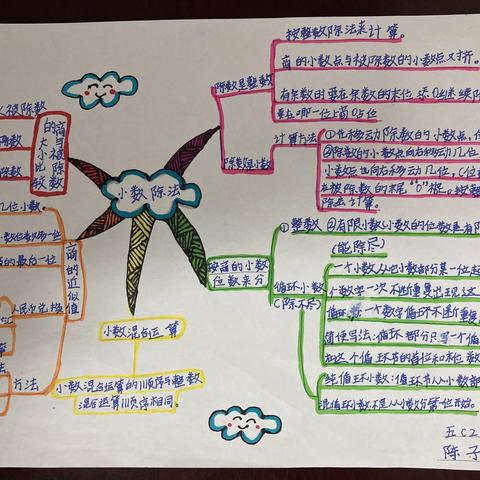 小数除法
除数是整数
按整数除法来计算。
商的小数点与被除数的小数点对齐。
有余数时要在余数的末位添0继续除
要在哪一位上商0占位
除数是小数
计算方法
①
移动除数的小数点,
②除数的小数点向右移动几位
小数点也向右移动几位。(位
在被除数的末尾"0"
除法计算。
按商的小数
位数来分
①整数 ②有限小数:小数的位数是有限
(能除尽)
循环小数
(除不尽)
一个小数从小数部分某一位起
个数字 一次不断重复出现这
循环
一个数字循环不断重复
简便写法:循环部分只
一个循
在这个循环节的首位和末位数
纯循环小数:循环节从小数部
混循环小数不是从小数部分第一位开始。
小数混合运算
小数混合运算的顺序与整数
混合运算顺序相同。
商与被除数
的大小比较
被除数
除数
除数
商的近似值
几位小数。
小数位数多一位
的最后一位
人民币兑换
方法
五(2
陈子